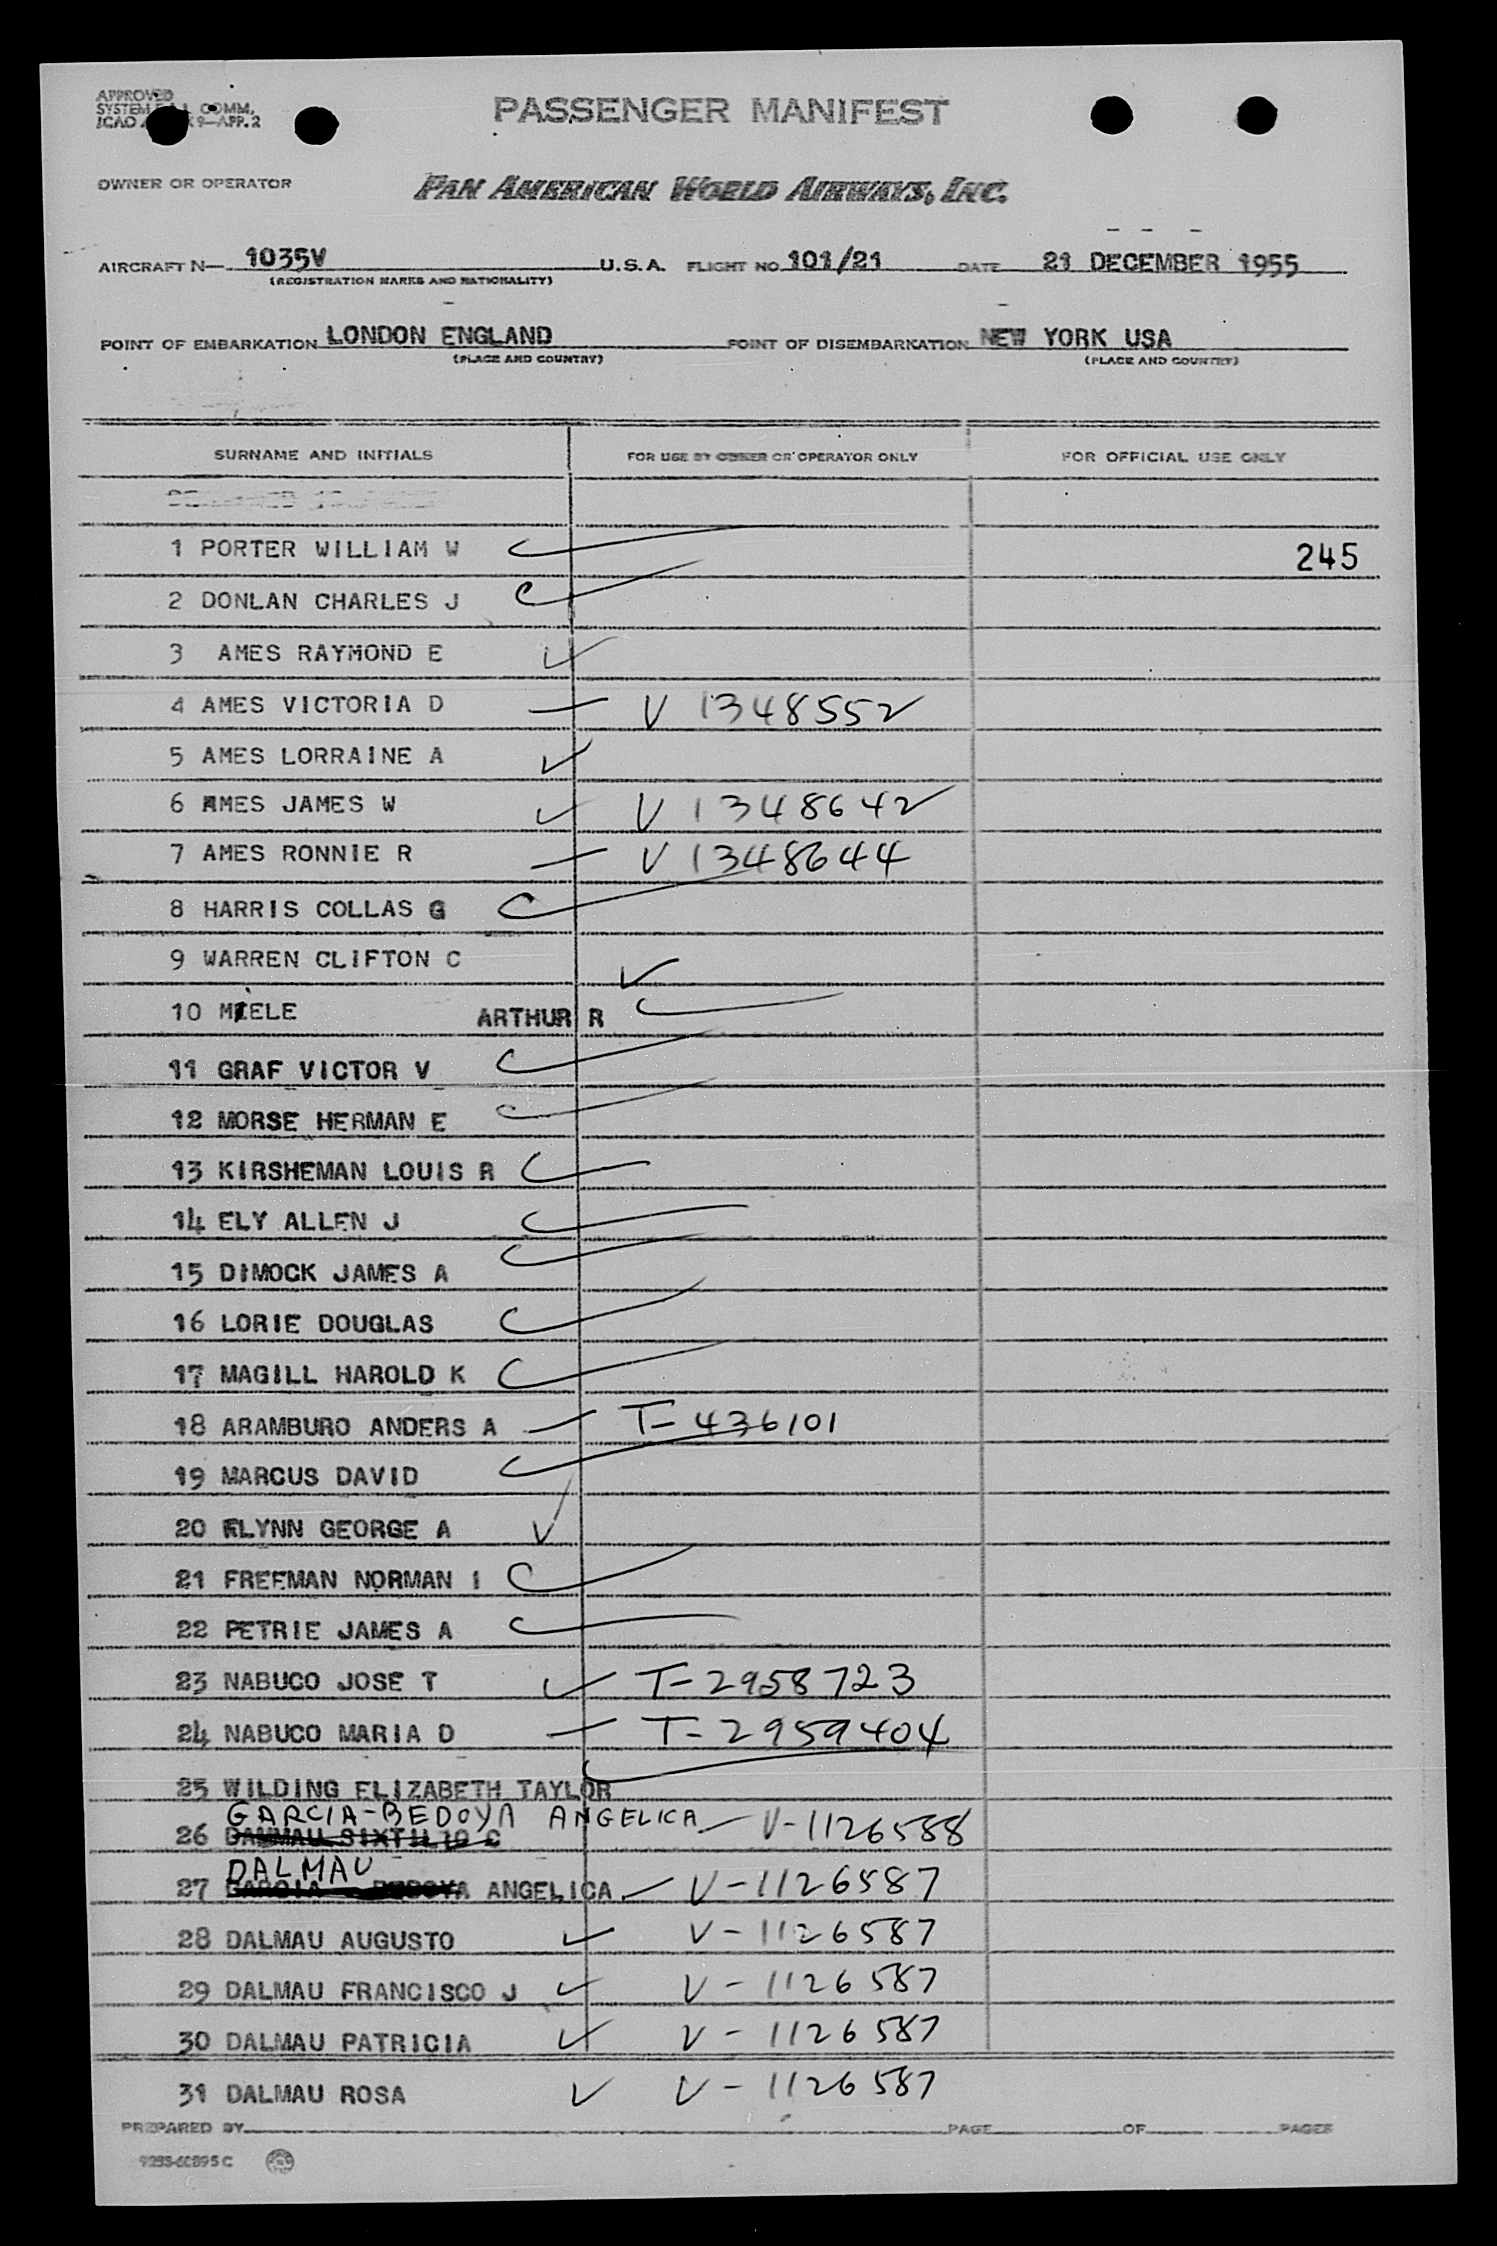 APPROVED
SYSTEM COMM.
ICAO 9—APP. 2
PASSENGER MANIFEST
OWNER OR OPERATOR PAN AMERICAN WORLD AIRWAYS, INC.
AIRCRAFT N— 1035V U.S.A. FLIGHT NO. 101/21 DATE 21 DECEMBER 1955
(REGISTRATION MARKS AND NATIONALITY)
POINT OF EMBARKATION LONDON ENGLAND POINT OF DISEMBARKATION NEW YORK USA
(PLACE AND COUNTRY) (PLACE AND COUNTRY)
SURNAME AND INITIALS FOR USE BY OWNER OR OPERATOR ONLY FOR OFFICIAL USE ONLY
1 PORTER WILLIAM W 245
2 DONLAN CHARLES J
3 AMES RAYMOND E
4 AMES VICTORIA D V 1348552
5 AMES LORRAINE A
6 AMES JAMES W V 1348642
7 AMES RONNIE R V 1348644
8 HARRIS COLLAS G
9 WARREN CLIFTON C
10 MIELE ARTHUR R
11 GRAF VICTOR V
12 MORSE HERMAN E
13 KIRSHEMAN LOUIS R
14 ELY ALLEN J
15 DIMOCK JAMES A
16 LORIE DOUGLAS
17 MAGILL HAROLD K
18 ARAMBURO ANDERS A T-436101
19 MARCUS DAVID
20 FLYNN GEORGE A
21 FREEMAN NORMAN I
22 PETRIE JAMES A
23 NABUCO JOSE T T-2958723
24 NABUCO MARIA D T-2959404
25 WILDING ELIZABETH TAYLOR
GARCIA-BEDOYA ANGELICA V-1126588
26 DALMAU SIXTILIO C
DALMAU
27 GARCIA BEDOYA ANGELICA V-1126587
28 DALMAU AUGUSTO V-1126587
29 DALMAU FRANCISCO J V-1126587
30 DALMAU PATRICIA V-1126587
31 DALMAU ROSA V-1126587
PREPARED BY PAGE OF PAGES